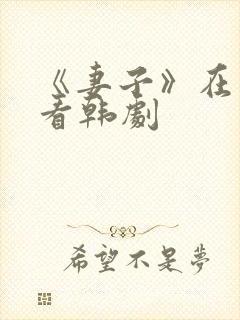 《妻子》在
看韩劇
希望不是夢